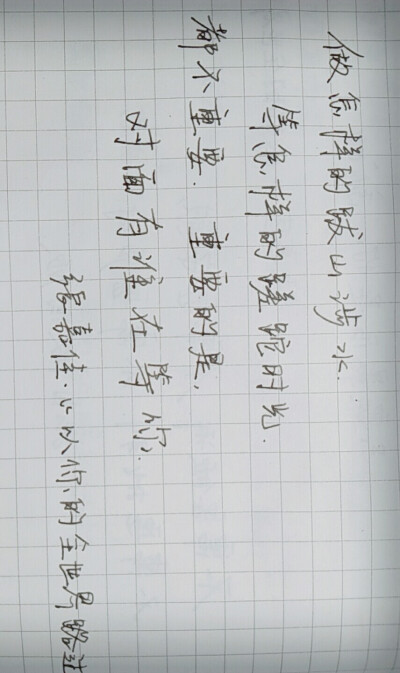 做怎样的跋山涉水.
等怎样的蹉跎时光.
都不重要. 重要的是,
对面有谁在等你.
张嘉佳.《从你的全世界路过